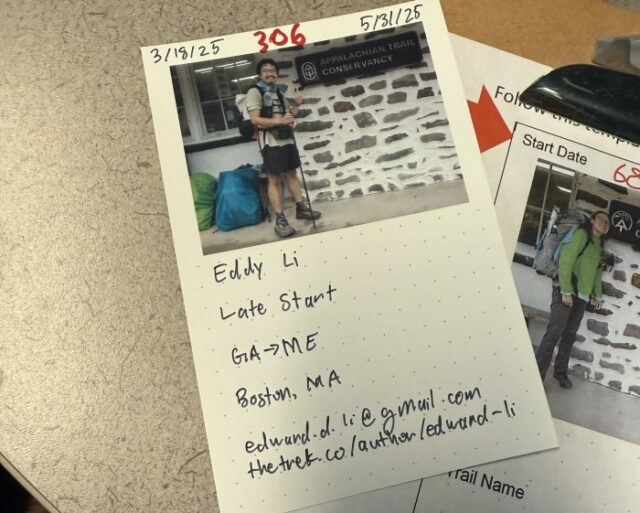 3/18/25 306 5/31/25
APPALACHIAN TRAIL
CONSERVANCY
Eddy Li
Late Start
GA→ME
Boston, MA
edward.d.li@gmail.com
thetrek.co/author/edward-li
Follow this
Start Date
68
Trail Name